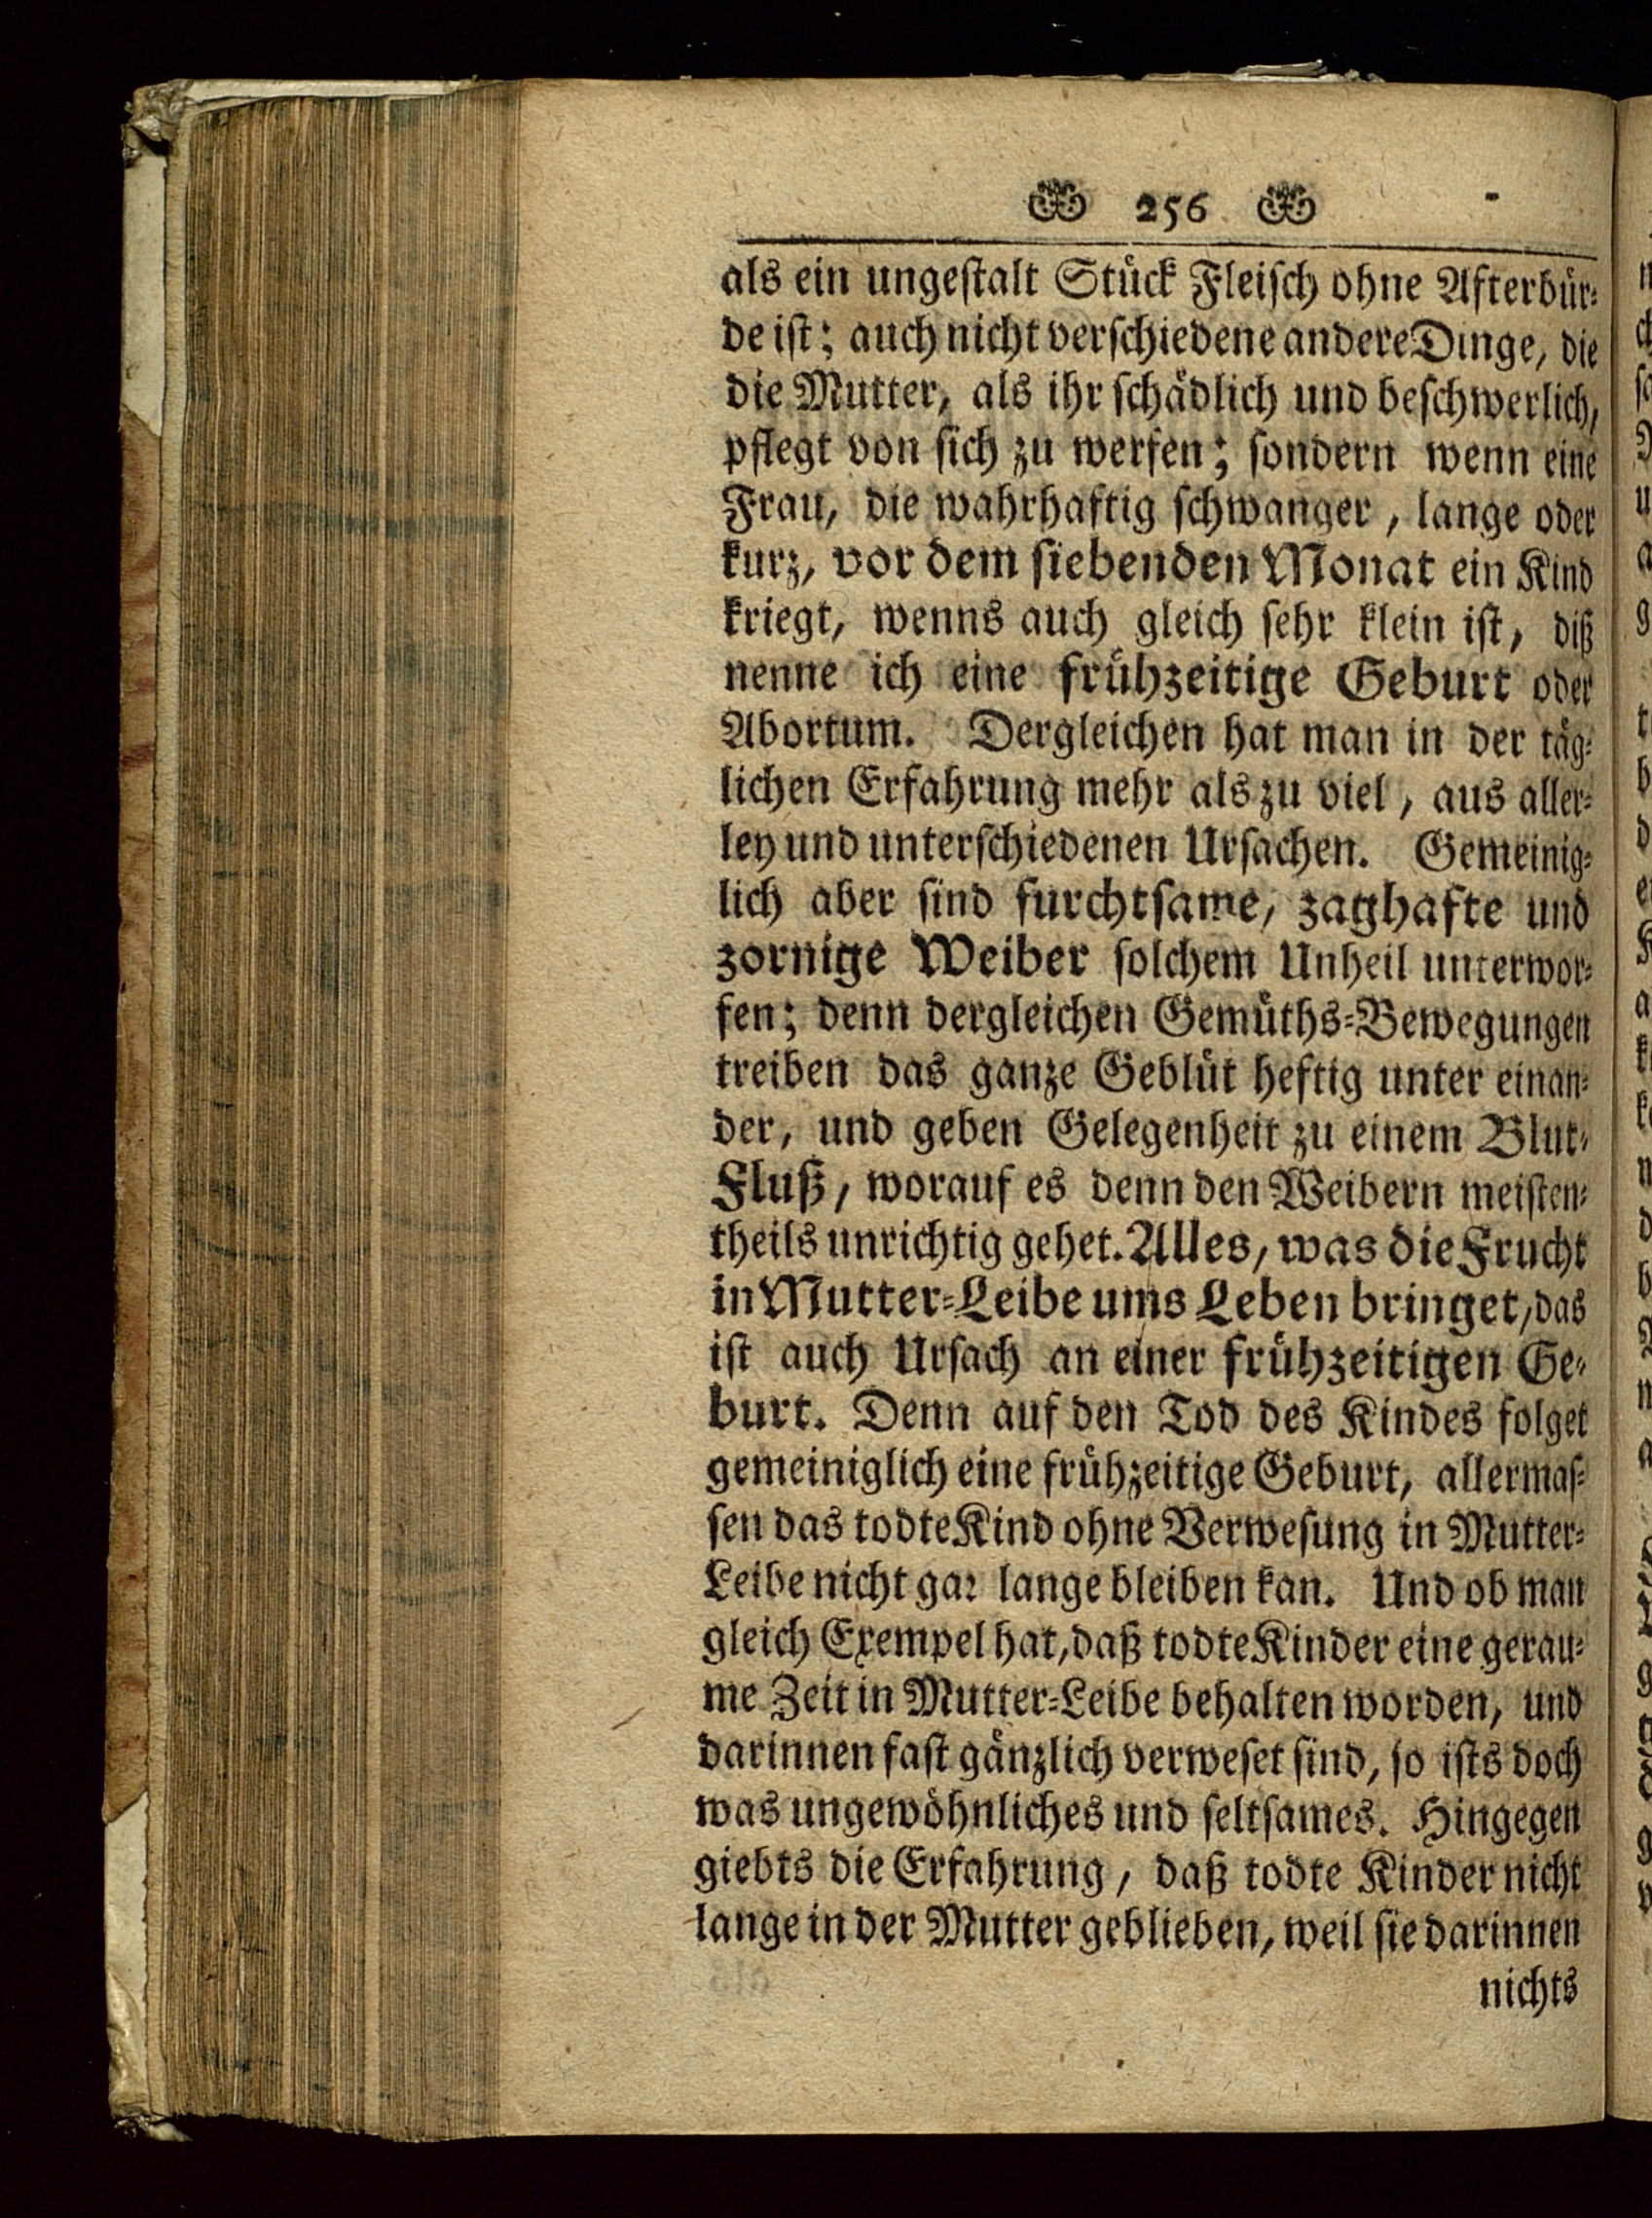 256
als ein ungestalt Stück Fleisch ohne Afterbür-
de ist; auch nicht verschiedene andere Dinge, die
die Mutter, als ihr schädlich und beschwerlich,
pflegt von sich zu werfen; sondern wenn eine
Frau, die wahrhaftig schwanger, lange oder
kurz, vor dem siebenden Monat ein Kind
kriegt, wenns auch gleich sehr klein ist, diß
nenne ich eine frühzeitige Geburt oder
Abortum. Dergleichen hat man in der täg-
lichen Erfahrung mehr als zu viel, aus aller-
ley und unterschiedenen Ursachen. Gemeinig-
lich aber sind furchtsame, zaghafte und
zornige Weiber solchem Unheil unterwor-
fen; denn dergleichen Gemüths-Bewegungen
treiben das ganze Geblüt heftig unter einan-
der, und geben Gelegenheit zu einem Blut-
Fluß, worauf es denn den Weibern meisten-
theils unrichtig gehet. Alles, was die Frucht
in Mutter-Leibe ums Leben bringet, das
ist auch Ursach an einer frühzeitigen Ge-
burt. Denn auf den Tod des Kindes folget
gemeiniglich eine frühzeitige Geburt, allermas-
sen das todte Kind ohne Verwesung in Mutter-
Leibe nicht gar lange bleiben kan. Und ob man
gleich Exempel hat, daß todte Kinder eine gerau-
me Zeit in Mutter-Leibe behalten worden, und
darinnen fast gänzlich verweset sind, so ists doch
was ungewöhnliches und seltsames. Hingegen
giebts die Erfahrung, daß todte Kinder nicht
lange in der Mutter geblieben, weil sie darinnen
nichts